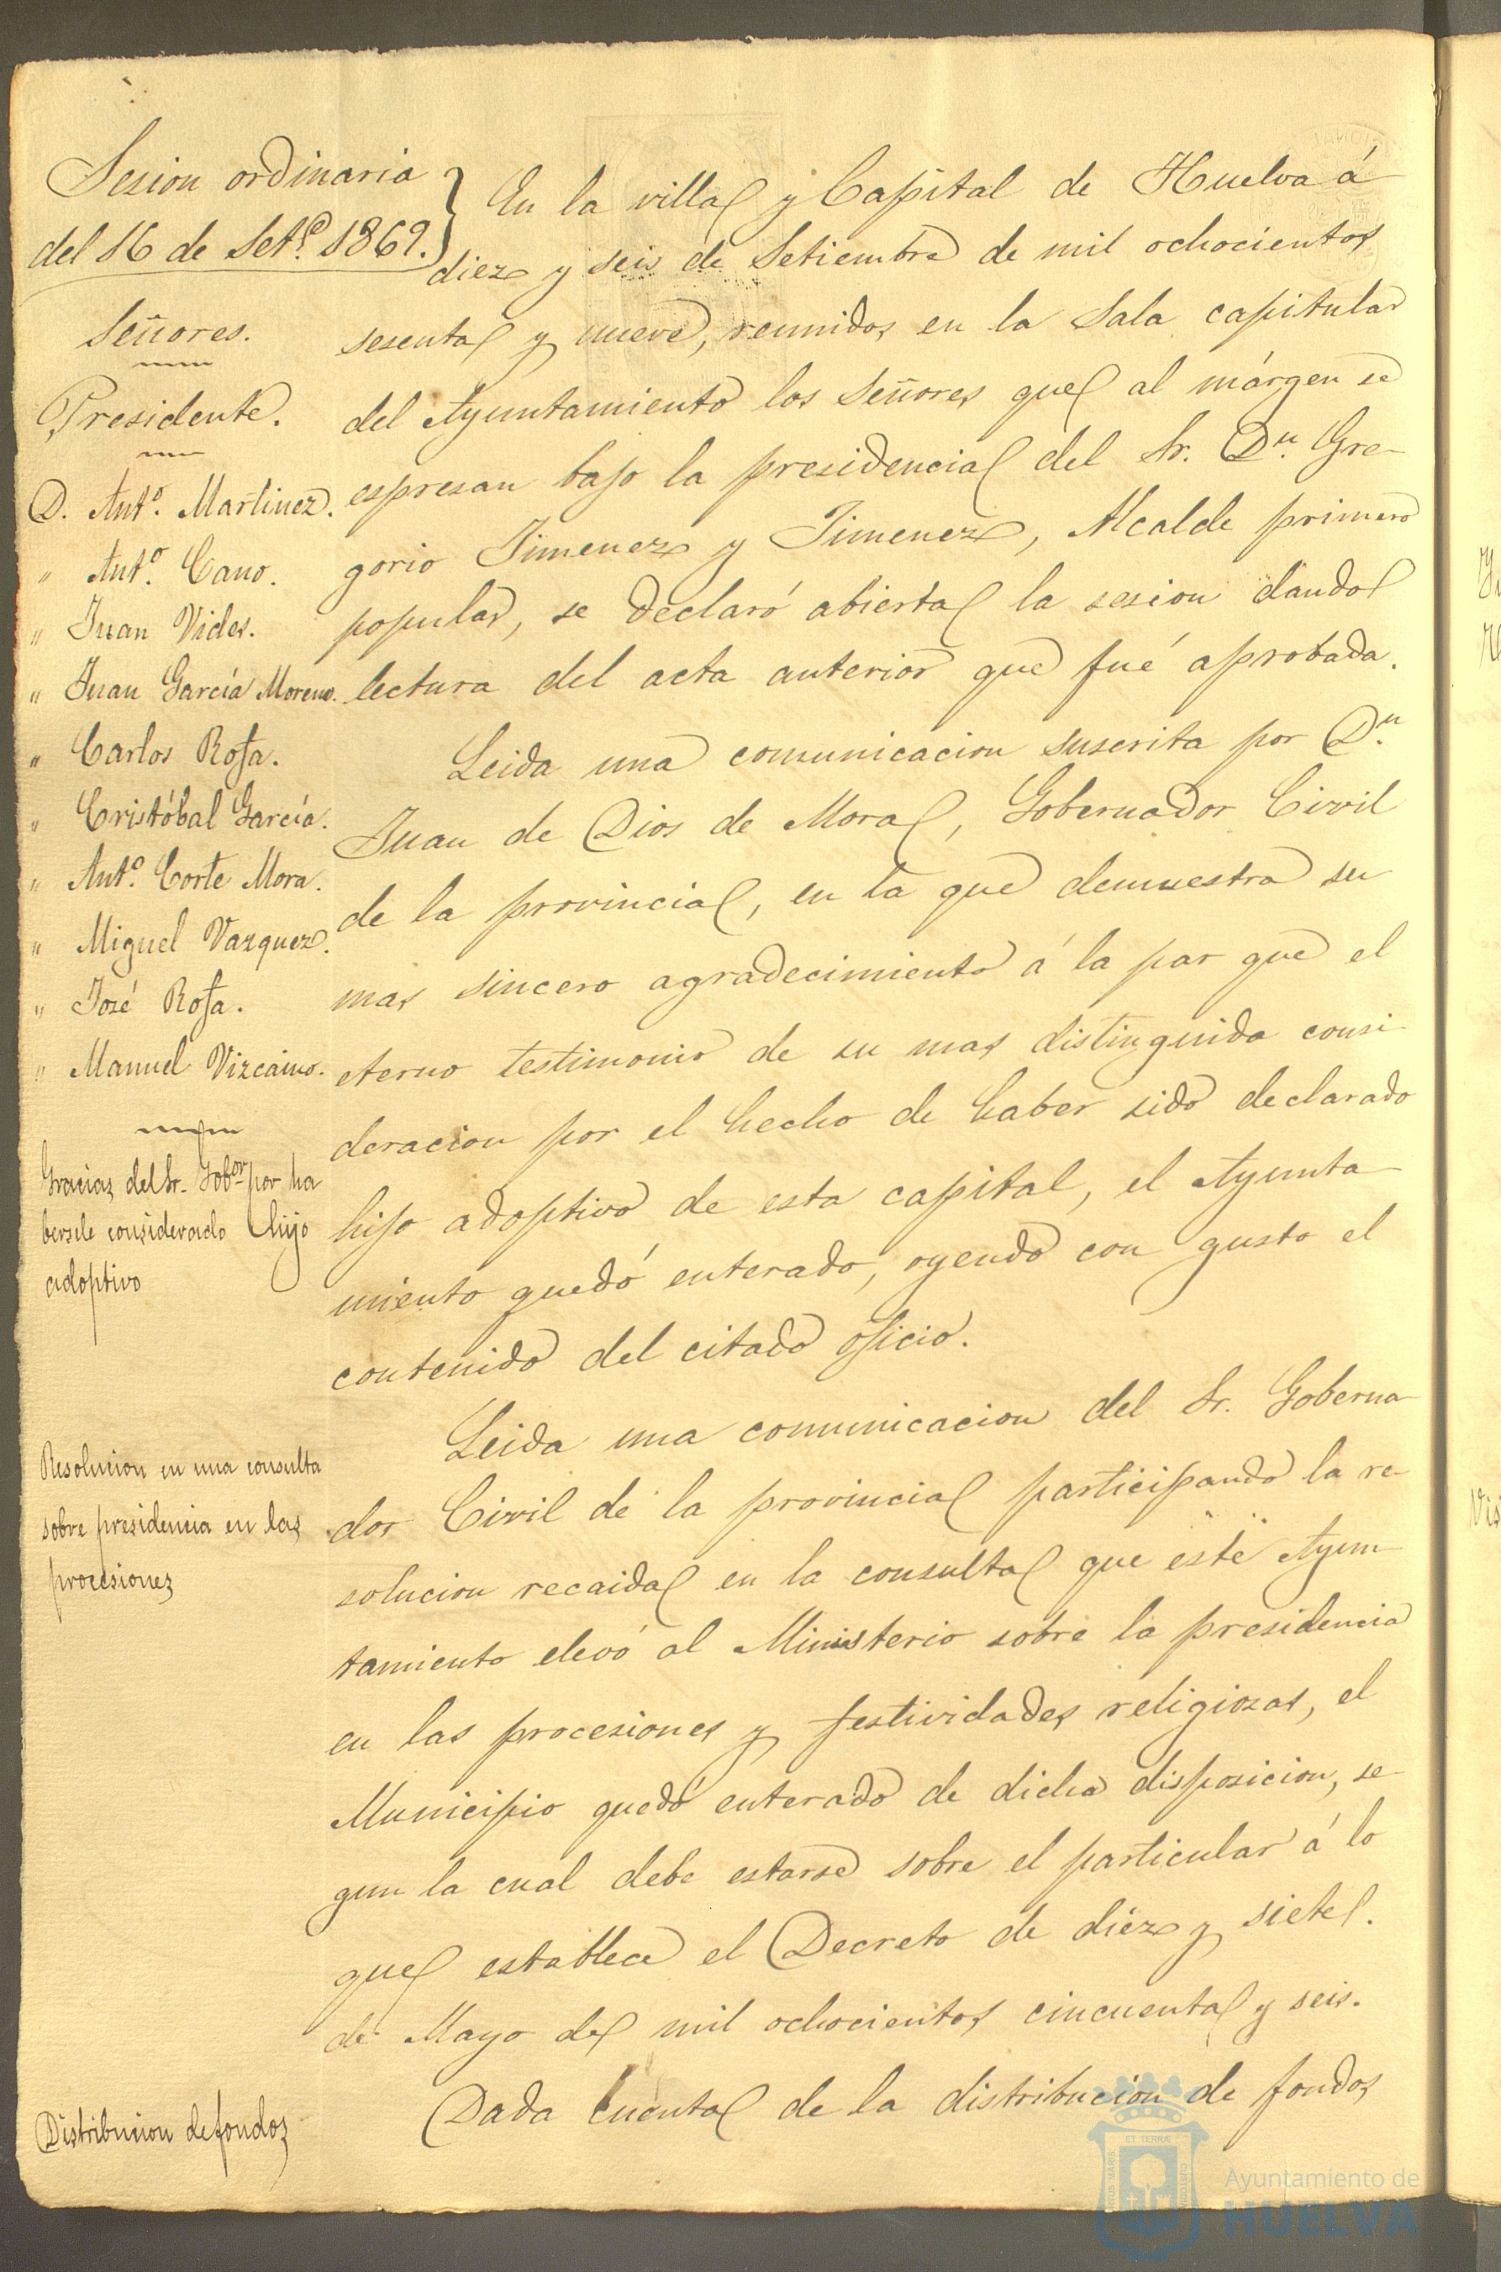 Sesion ordinaria
del 16 de Set.e 1869.
Señores.
Presidente.
D. Ant.o Martinez.
" Ant.o Cano.
" Juan Vides.
" Juan García Moreno.
" Carlos Rofa.
" Cristóbal García.
" Ant.o Corte Mora.
" Miguel Vazquez.
" José Rofa.
" Manuel Vizcaino.
Gracias del Sr. Gob.or por ha
bersele considerado hijo
adoptivo
Resolucion en una consulta
sobre presidencia en las
procesiones
Distribucion de fondos
En la villa y Capital de Huelva á
diez y seis de Setiembre de mil ochocientos
sesenta y nueve, reunidos en la Sala capitular
del Ayuntamiento los Señores que al márgen se
espresan bajo la presidencia del Sr. D.n Gre-
gorio Jimenez y Jimenez, Alcalde primero
popular, se declaró abierta la sesion dando
lectura del acta anterior que fué aprobada.
Leida una comunicacion suscrita por D.n
Juan de Dios de Mora, Gobernador Civil
de la provincia, en la que demuestra su
mas sincero agradecimiento á la par que el
eterno testimonio de su mas distinguida consi-
deracion por el hecho de haber sido declarado
hijo adoptivo de esta capital, el Ayunta-
miento quedó enterado, oyendo con gusto el
contenido del citado oficio.
Leida una comunicacion del Sr. Goberna-
dor Civil de la provincia participando la re-
solucion recaida en la consulta que este Ayun-
tamiento elevó al Ministerio sobre la presidencia
en las procesiones y festividades religiosas, el
Municipio quedó enterado de dicha disposicion, se-
gun la cual debe estarse sobre el particular á lo
que establece el Decreto de diez y siete.
de Mayo de mil ochocientos cincuenta y seis.
Dada cuenta de la distribucion de fondos
ET TERRÆ
Ayuntamiento de
HUELVA